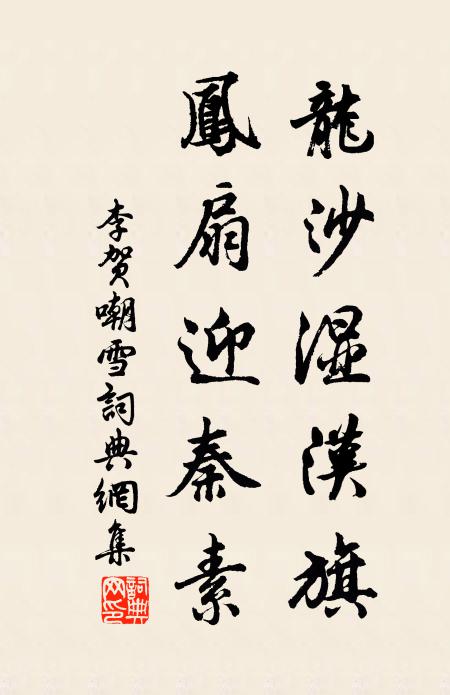 龍沙濕漢旗
鳳扇迎秦素
李賀嘲雪詞典網集
詞典网印